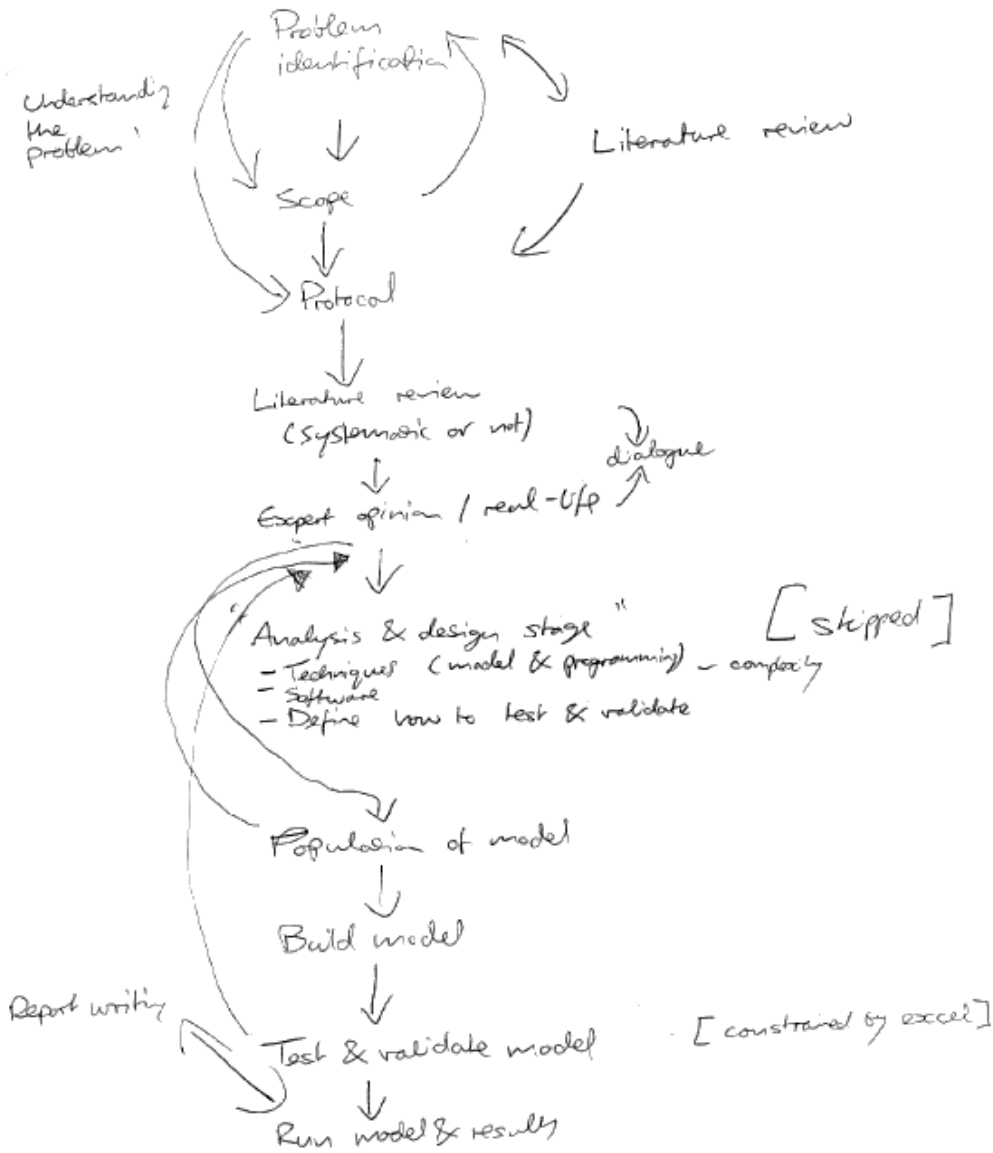 Problem
identification
Understanding
the
problem
Literature review
Scope
Protocol
Literature review
(systematic or not)
dialogue
Expert opinion / real-life
"Analysis & design stage"
[skipped]
- Techniques (model & programming) - complexity
- Software
- Define how to test & validate
Population of model
Build model
Report writing
Test & validate model
[constrained by excel]
Run model & results